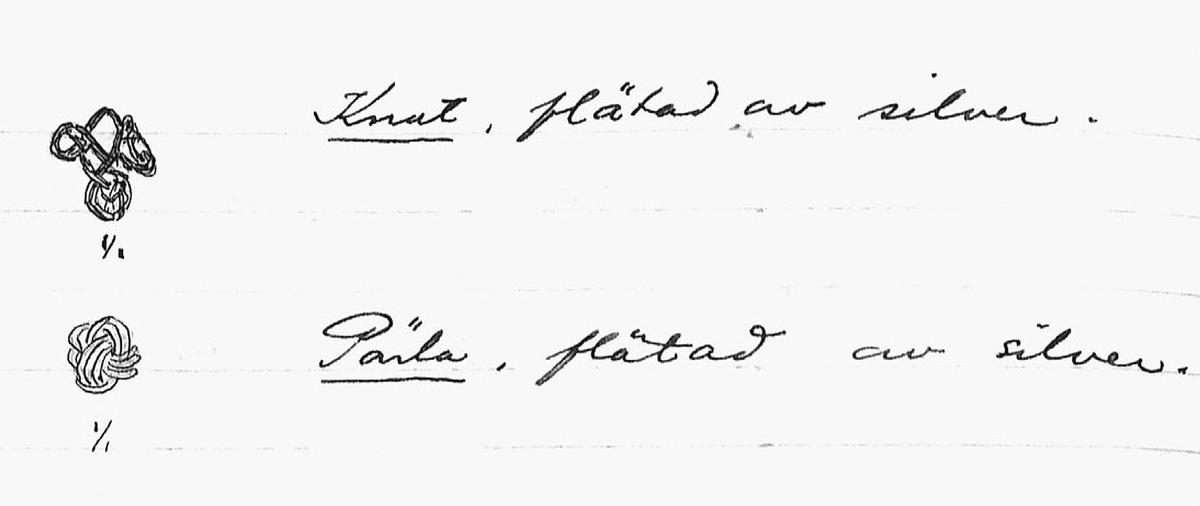 Knut, flätad av silver.
1/1
Pärla, flätad av silver.
1/1